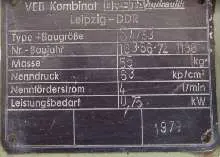 VEB Kombinat
Leipzig-DDR
Type-Baugröße
Nr.-Baujahr 1138
Masse 55 kg
Nenndruck 63 kp/cm²
Nennförderstrom 4 l/min
Leistungsbedarf 0,75 kW
1979